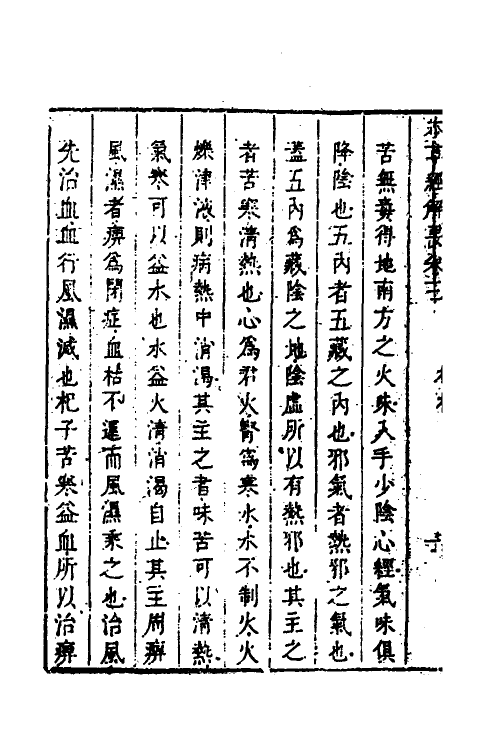 本草經解要卷三
苦無毒得地南方之火味入手少陰心經氣味俱
降陰也五內者五藏之內也邪氣者熱邪之氣也
蓋五內爲藏陰之地陰虛所以有熱邪也其主之
者苦寒清熱也心爲君火腎爲寒水水不制火火
爍津液則病熱中消渴其主之者味苦可以清熱
氣寒可以益水也水益火清消渴自止其主周痹
風濕者痹爲閉症血枯不運而風濕乘之也治風
先治血血行風濕滅也杞子苦寒益血所以治痹